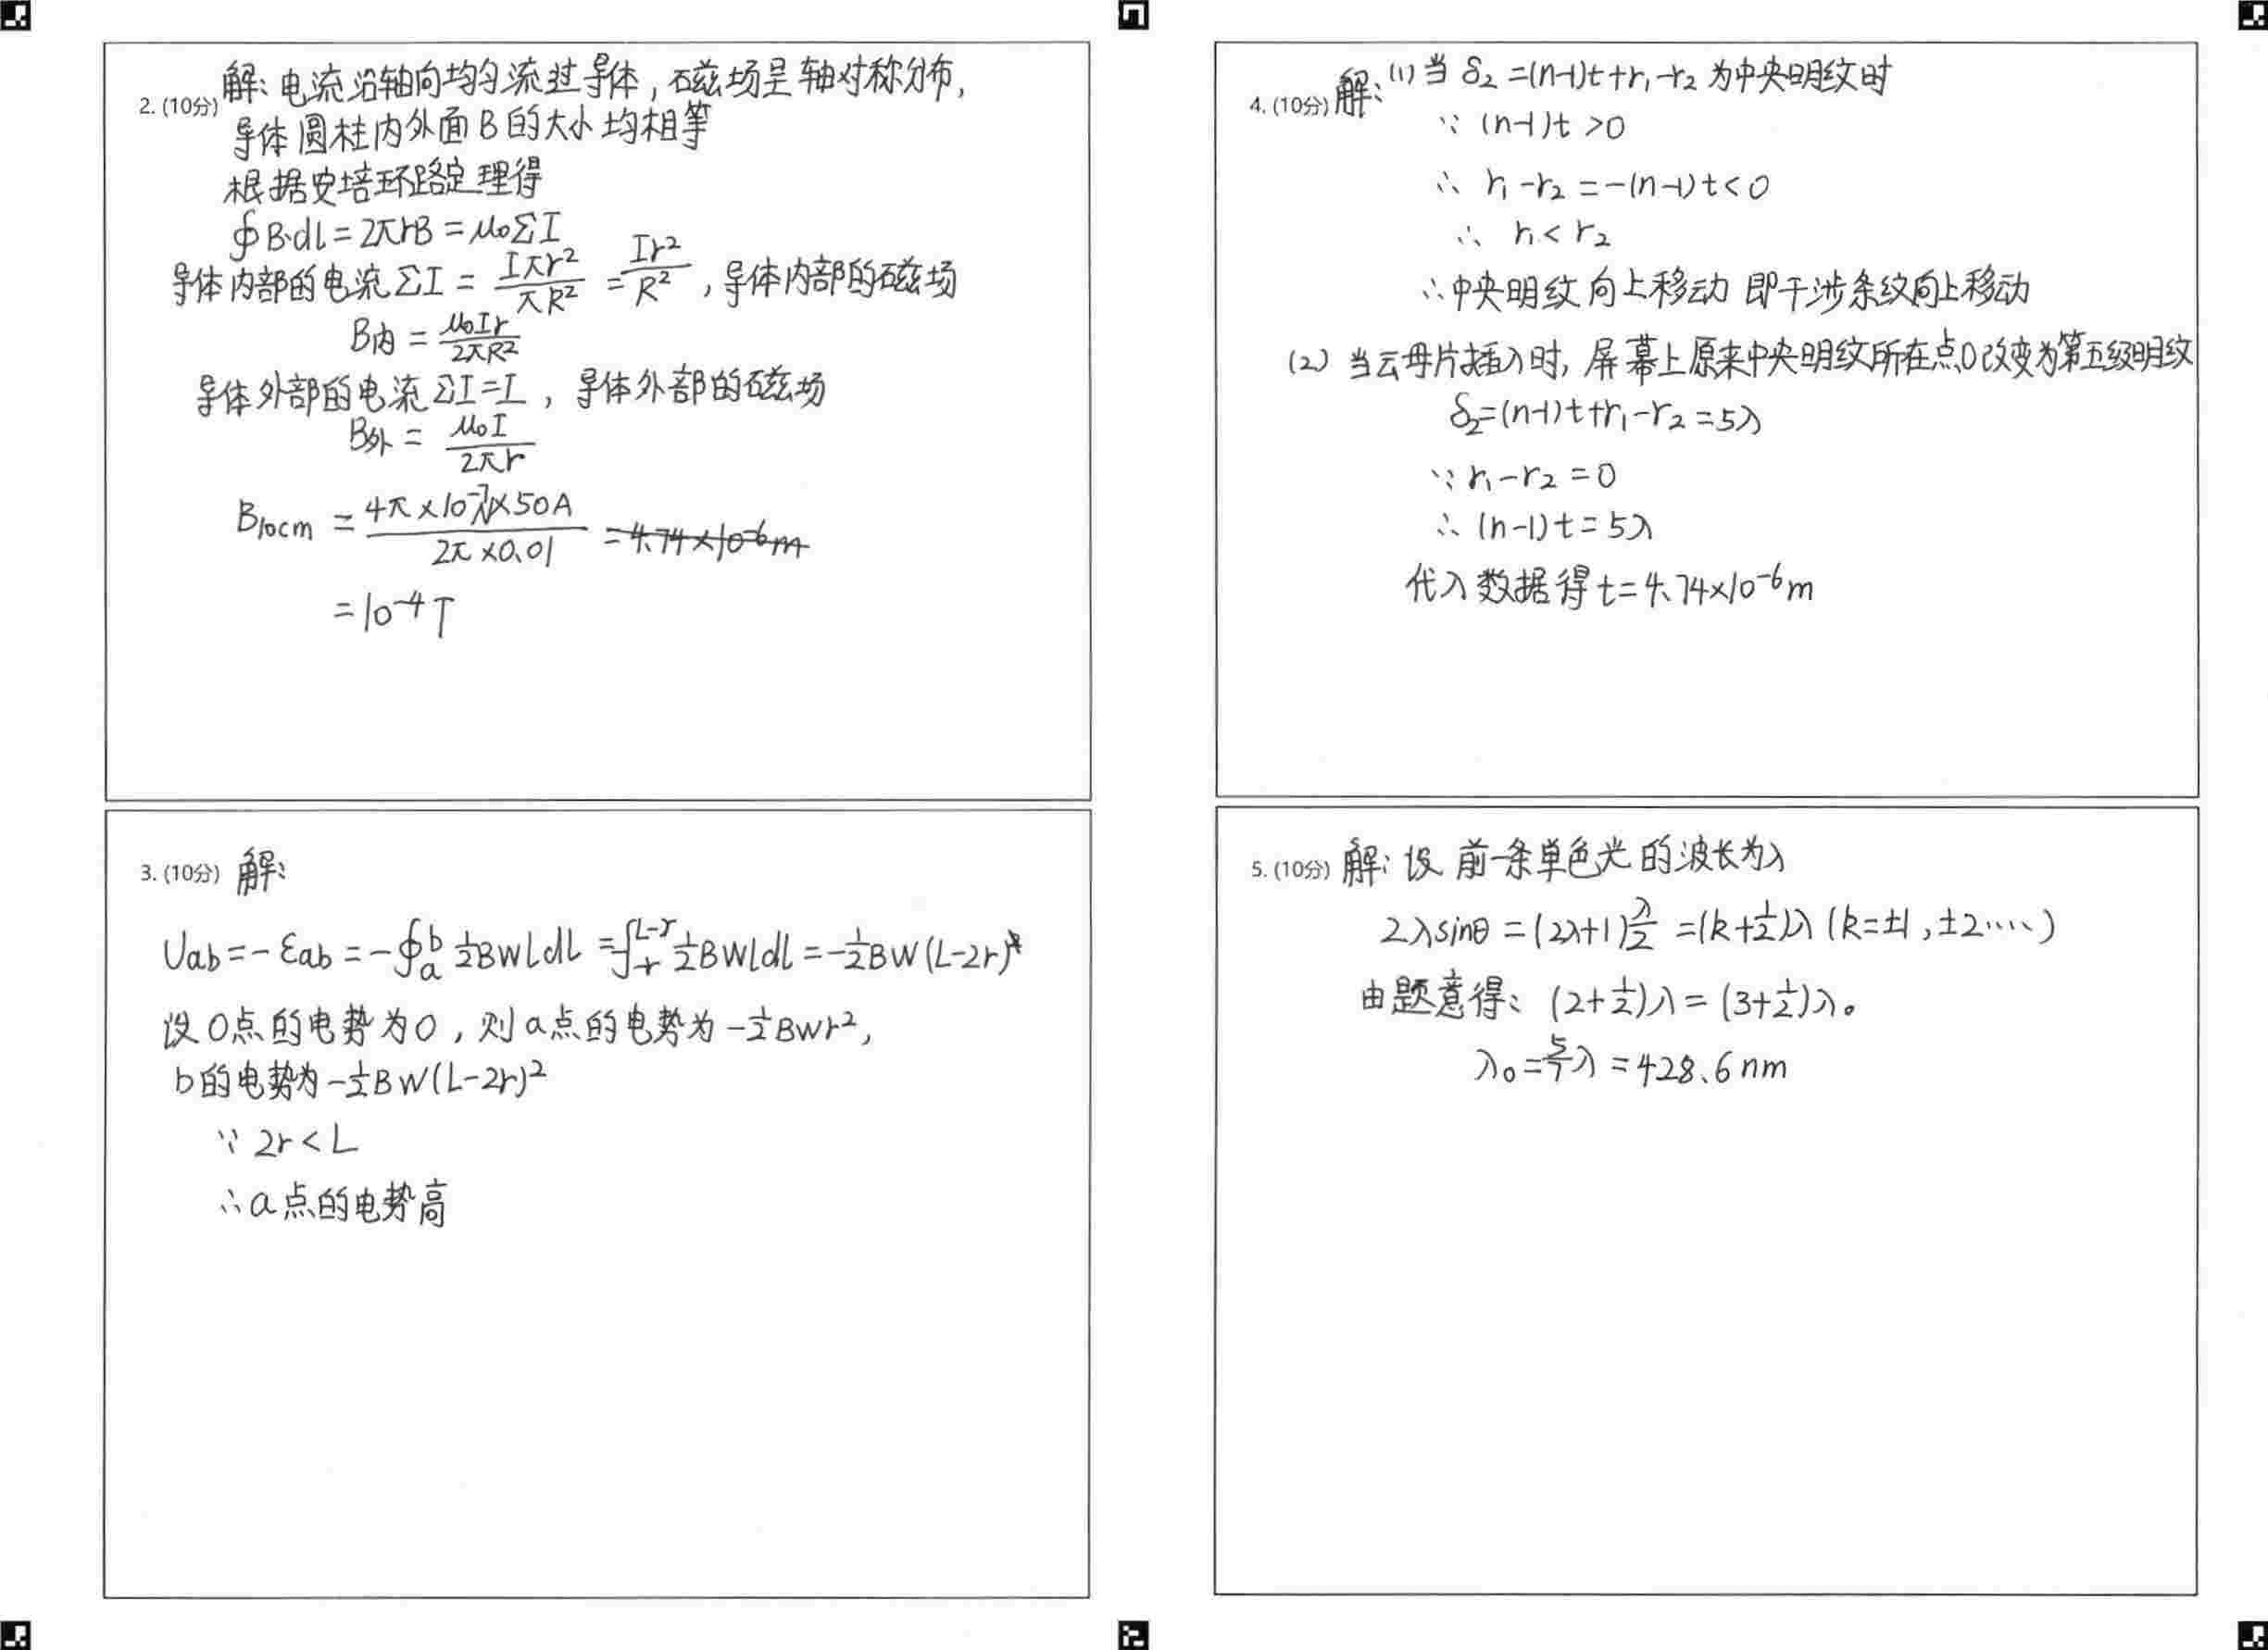 2. (10分) 解: 电流沿轴向均匀流过导体, 磁场呈轴对称分布,
导体圆柱内外面B的大小均相等
根据安培环路定理得
∮B·dl=2πrB=μ₀ΣI
导体内部的电流ΣI = Iπr²/πR² = Ir²/R², 导体内部的磁场
B内 = μ₀Ir/2πR²
导体外部的电流ΣI=I, 导体外部的磁场
B外 = μ₀I/2πr
B10cm = 4π×10⁻⁷×50A/2π×0.01 =4.74×10⁻⁶m
=10⁻⁴T
3. (10分) 解:
Uab=-εab=-∮ₐᵇ ½BWLdL =∫ᵣᴸ⁻ʳ ½BWLdL=-½BW(L-2r)²
设O点的电势为0, 则a点的电势为-½BWr²,
b的电势为-½BW(L-2r)²
∵ 2r<L
∴a点的电势高
4. (10分) 解: (1)当 δ₂=(n-1)t+r₁-r₂为中央明纹时
∵ (n-1)t>0
∴ r₁-r₂=-(n-1)t<0
∴ r₁<r₂
∴中央明纹向上移动 即干涉条纹向上移动
(2) 当云母片插入时, 屏幕上原来中央明纹所在点O改变为第五级明纹
δ₂=(n-1)t+r₁-r₂=5λ
∵r₁-r₂=0
∴(n-1)t=5λ
代入数据得t=4.74×10⁻⁶m
5. (10分) 解: 设 前一条单色光的波长为λ
2λsinθ=(2λ+1)λ/2=(k+½)λ (k=±1,±2····)
由题意得: (2+½)λ=(3+½)λ₀
λ₀=5/7λ=428.6nm